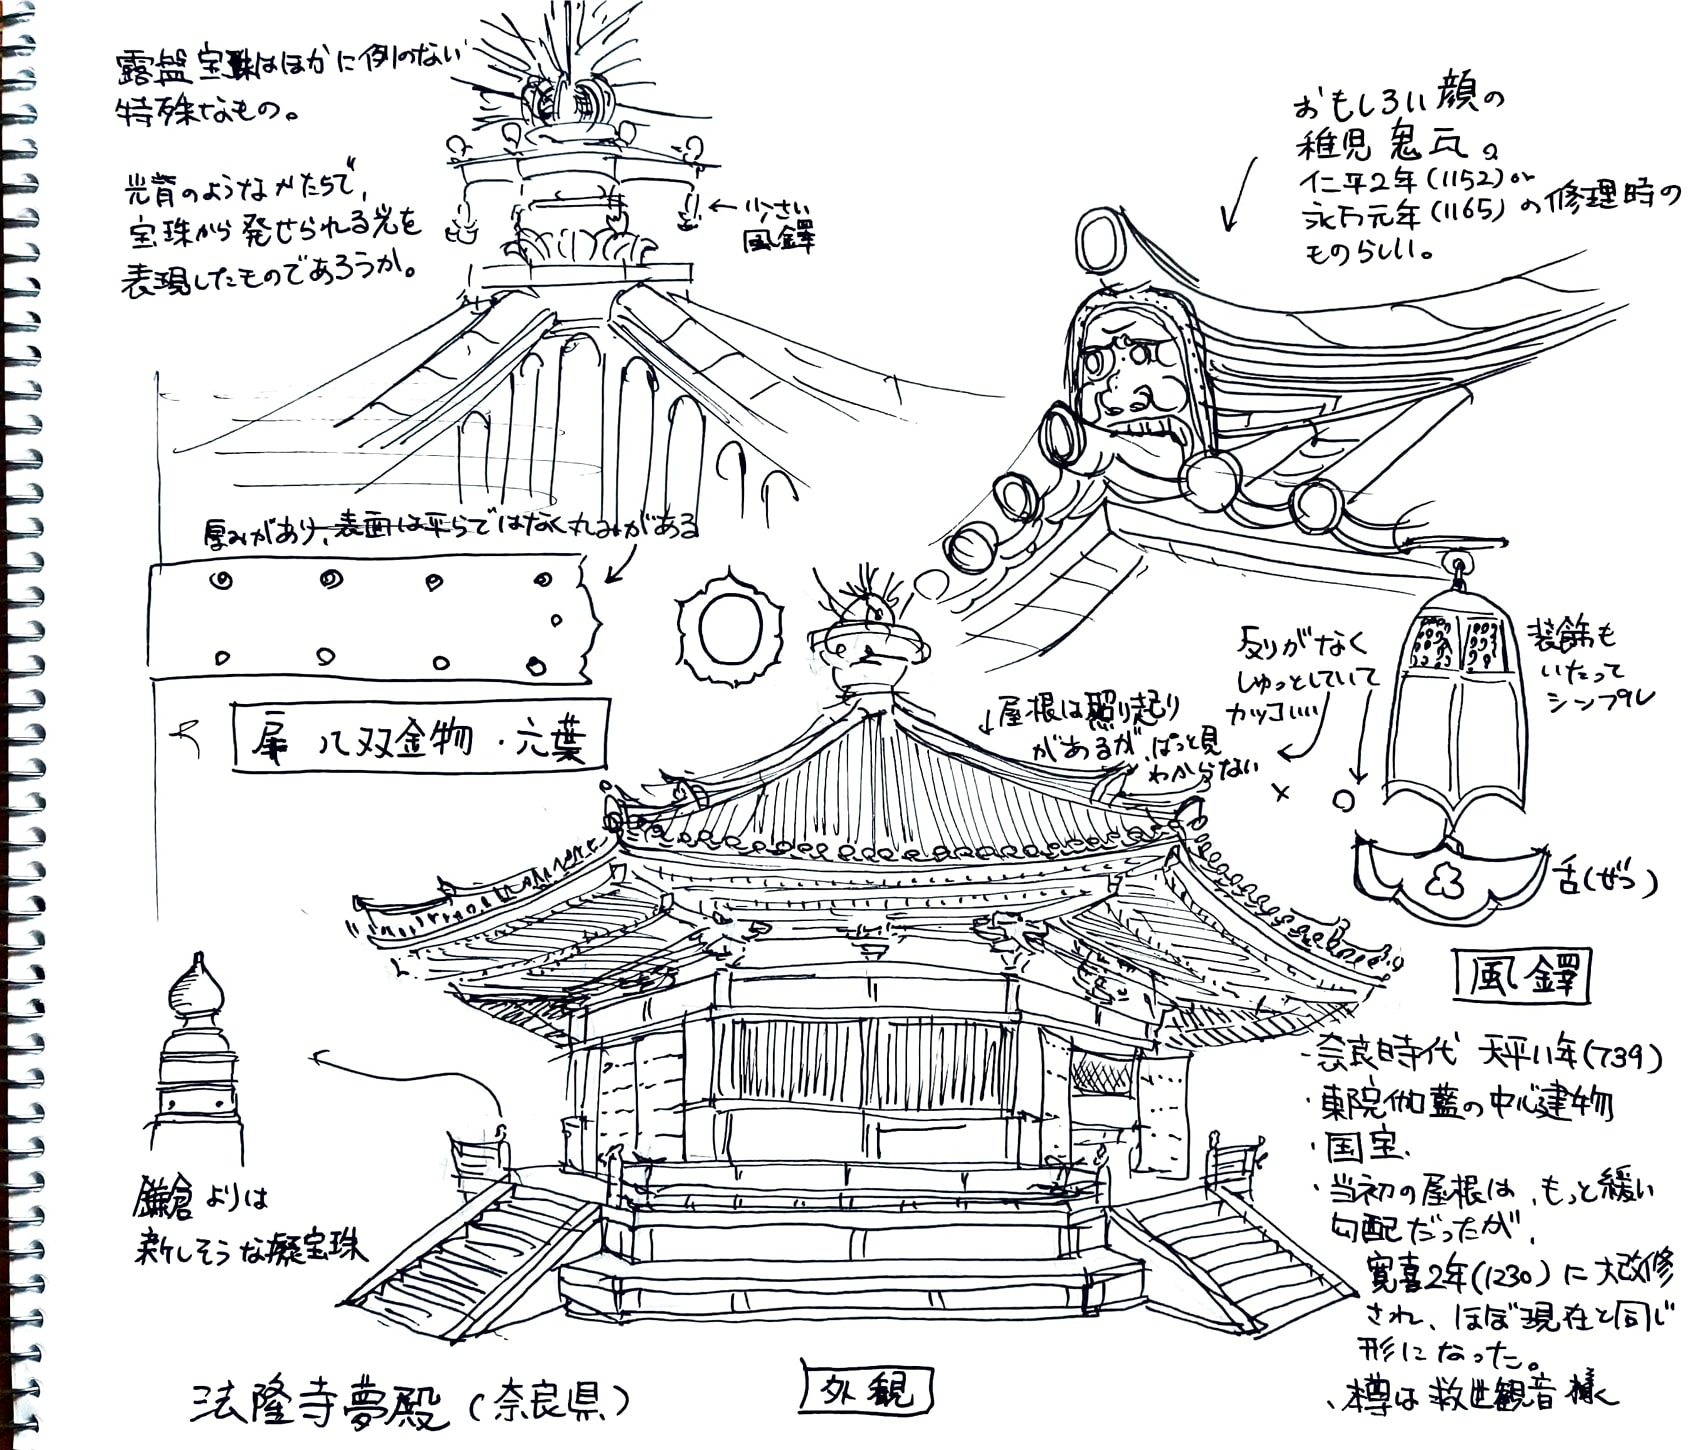 露盤宝珠はほかに例のない
特殊なもの。
光背のようなかたちで、
宝珠から発せられる光を
表現したものであろうか。
←小さい
風鐸
おもしろい顔の
稚児鬼瓦。
仁平2年(1152)or
永万元年(1165)の修理時の
ものらしい。
厚みがあり、表面は平らではなく丸みがある
扉 八双金物・六葉
反りがなく
しゅっとしていて
カッコいい
装飾も
いたって
シンプル
屋根は照り起り
があるが、ぱっと見
わからない
×
○
舌(ぜつ)
風鐸
・奈良時代 天平11年(739)
・東院伽藍の中心建物
・国宝.
・当初の屋根は、もっと緩い
勾配だったが、
寛喜2年(1230)に大改修
され、ほぼ現在と同じ
形になった。
・本尊は救世観音様
鎌倉よりは
新しそうな擬宝珠
法隆寺夢殿(奈良県)
外観